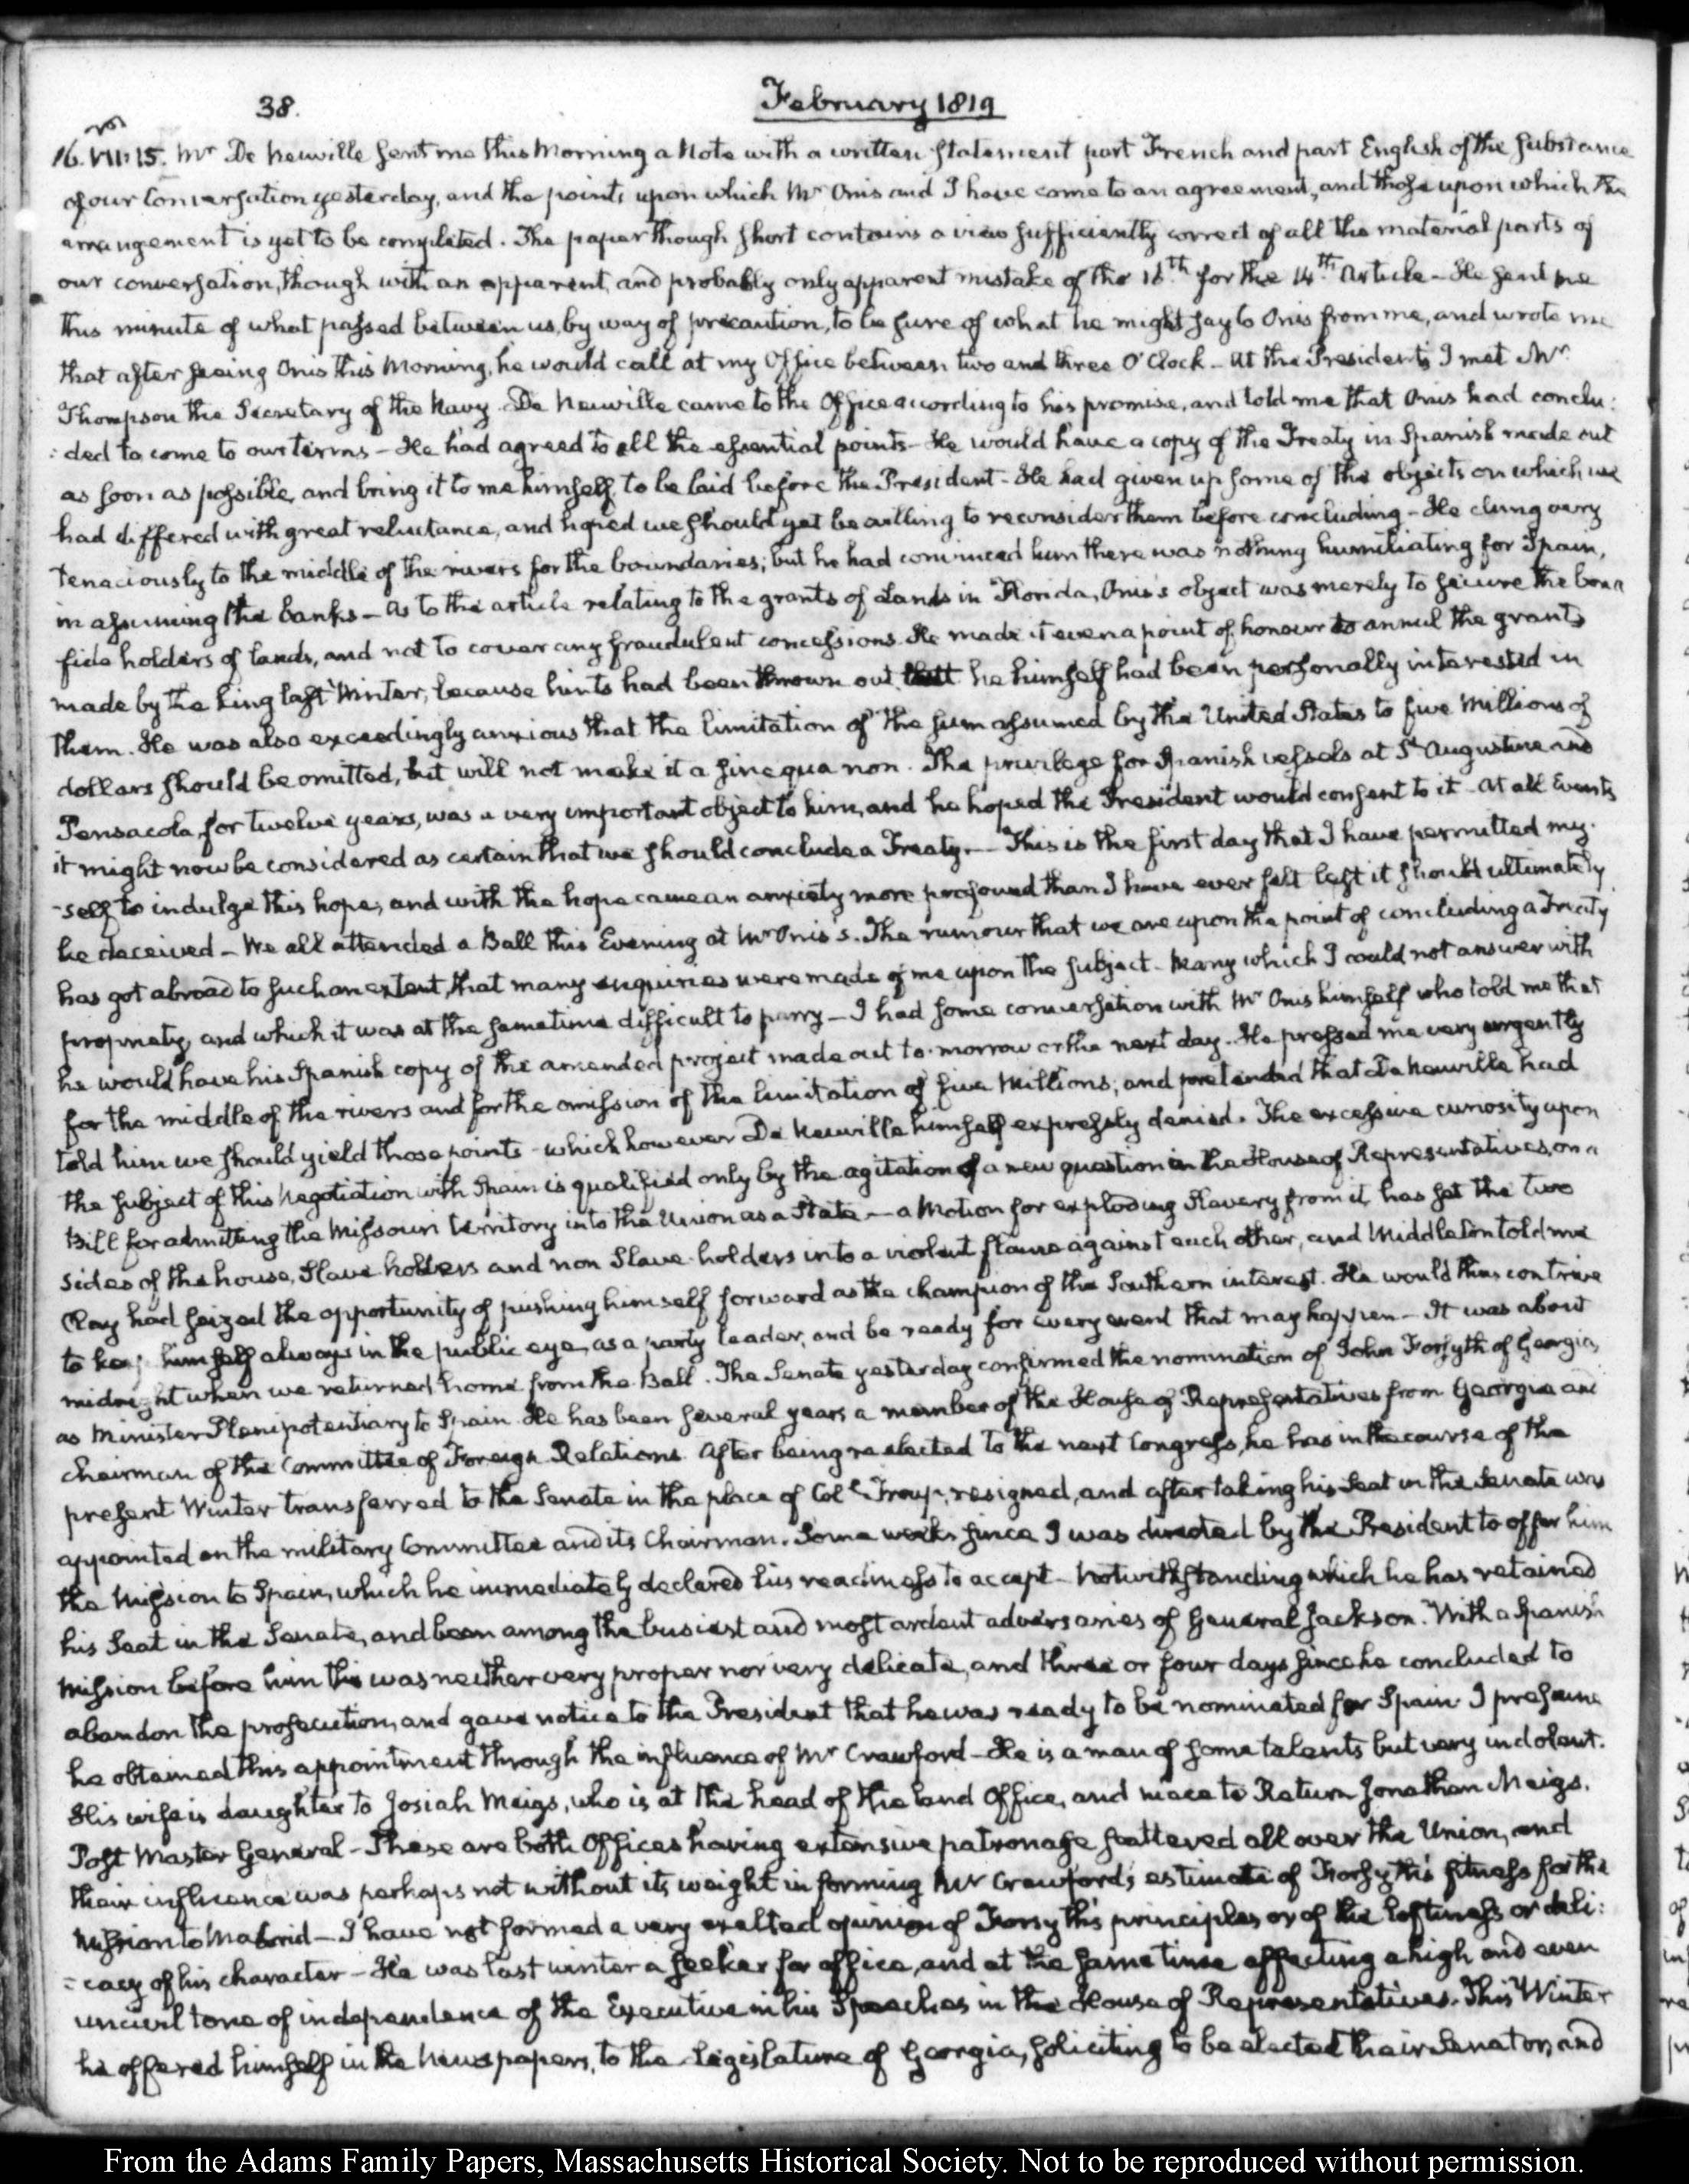 38.
February 1819
16. VII:15. Mr De Neuville sent me this Morning a Note with a written statement part French and part English of the substance
of our Conversation yesterday, and the points upon which Mr Onis and I have come to an agreement, and those upon which the
arrangement is yet to be completed. The paper though short contains a view sufficiently correct of all the material parts of
our conversation, though with an apparent, and probably only apparent mistake of the 16th for the 14th Article – He sent me
this minute of what passed between us, by way of precaution, to be sure of what he might say to Onis from me, and wrote me
that after seeing Onis this Morning, he would call at my Office between two and three O'Clock – At the President's I met Mr
Thompson the Secretary of the Navy. De Neuville came to the Office according to his promise, and told me that Onis had conclu:
:ded to come to our terms – He had agreed to all the essential points – He would have a copy of the Treaty in Spanish made out
as soon as possible, and bring it to me himself, to be laid before the President – He had given up some of the objects on which we
had differed with great reluctance, and hoped we should yet be willing to reconsider them before concluding – He clung very
tenaciously to the middle of the rivers for the boundaries; but he had convinced him there was nothing humiliating for Spain,
in assuming the banks – As to the article relating to the grants of Lands in Florida, Onis's object was merely to secure the bona
fide holders of lands, and not to cover any fraudulent concessions. He made it even a point of honour to annul the grants
made by the King last Winter, because hints had been thrown out that he himself had been personally interested in
them. He was also exceedingly anxious that the limitation of the sum assumed by the United States to five Millions of
dollars should be omitted, but will not make it a sine qua non. The privilege for Spanish vessels at St Augustine and
Pensacola, for twelve years, was a very important object to him, and he hoped the President would consent to it – At all Events
it might now be considered as certain that we should conclude a Treaty. – This is the first day that I have permitted my-
-self to indulge this hope, and with the hope came an anxiety more profound than I have ever felt lest it should ultimately
be deceived – We all attended a Ball this Evening at Mr Onis's. The rumour that we are upon the point of concluding a Treaty
has got abroad to such an extent, that many enquiries were made of me upon the subject – Many which I could not answer with
propriety, and which it was at the same time difficult to parry – I had some conversation with Mr Onis himself who told me that
he would have his Spanish copy of the amended project made out to-morrow or the next day. He pressed me very urgently
for the middle of the rivers and for the omission of the limitation of five Millions; and pretended that De Neuville had
told him we should yield those points – which however De Neuville himself expressly denied. The excessive curiosity upon
the subject of this Negotiation with Spain is qualified only by the agitation of a new question in the House of Representatives, on a
Bill for admitting the Missouri territory into the Union as a State – a Motion for exploding Slavery from it, has set the two
sides of the house, Slave holders and non Slave-holders into a violent flame against each other, and Middleton told me
Clay had seized the opportunity of pushing himself forward as the champion of the Southern interest. He would thus contrive
to keep himself always in the public eye, as a party leader, and be ready for every event that may happen – It was about
midnight when we returned home from the Ball. The Senate yesterday confirmed the nomination of John Forsyth of Georgia,
as Minister Plenipotentiary to Spain. He has been several years a member of the House of Representatives from Georgia and
chairman of the Committee of Foreign Relations. After being reelected to the next Congress, he has in the course of the
present Winter transferred to the Senate in the place of Coll Troup, resigned, and after taking his Seat in the Senate was
appointed on the military Committee and its Chairman. Some weeks since I was directed by the President to offer him
the Mission to Spain, which he immediately declared his readiness to accept – Notwithstanding which he has retained
his Seat in the Senate, and been among the busiest and most ardent adversaries of General Jackson. With a Spanish
Mission before him this was neither very proper nor very delicate, and three or four days since he concluded to
abandon the prosecution, and gave notice to the President that he was ready to be nominated for Spain. I presume
he obtained this appointment through the influence of Mr Crawford – He is a man of some talents but very indolent.
His wife is daughter to Josiah Meigs, who is at the head of the land Office, and niece to Return Jonathan Meigs,
Post Master General – These are both Offices having extensive patronage scattered all over the Union, and
their influence was perhaps not without its weight in forming Mr Crawford's estimate of Forsyth's fitness for the
Mission to Madrid – I have not formed a very exalted opinion of Forsyth's principles, or of the loftiness or deli:
:cacy of his character – He was last winter a seeker for office, and at the same time affecting a high and even
uncivil tone of independence of the Executive in his Speeches in the House of Representatives. This Winter
he offered himself in the Newspapers, to the Legislature of Georgia, soliciting to be elected their Senator, and
From the Adams Family Papers, Massachusetts Historical Society. Not to be reproduced without permission.